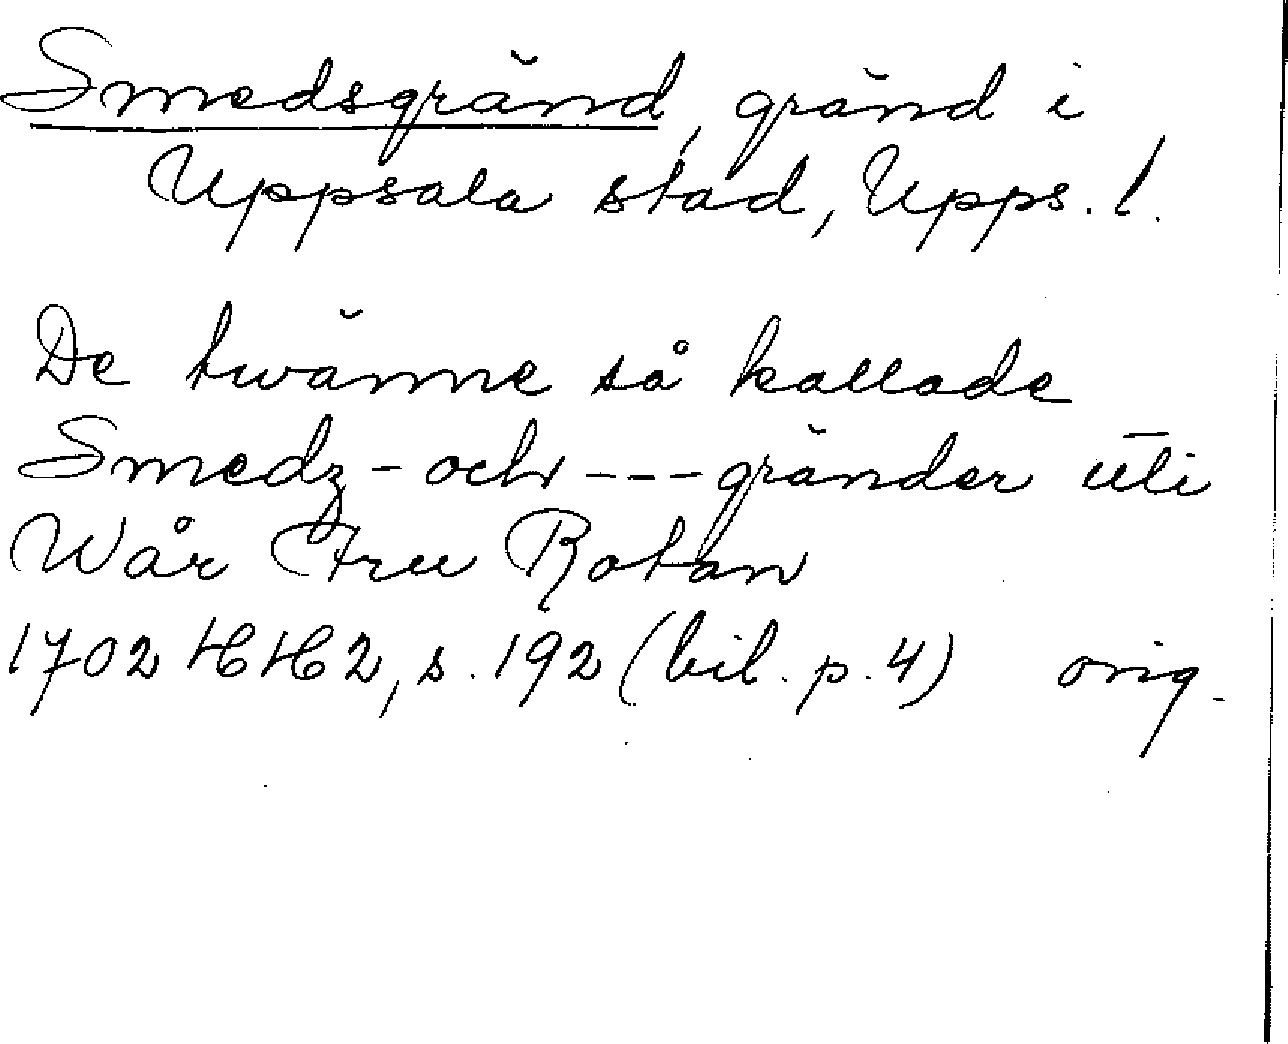 Smedsgränd, gränd i
Uppsala stad, Upps. l.
De twänne så kallade
Smedz- och --- gränder uti
Wår Fru Rotan
1702 HH 2, s. 192 (bil. p. 4) orig.